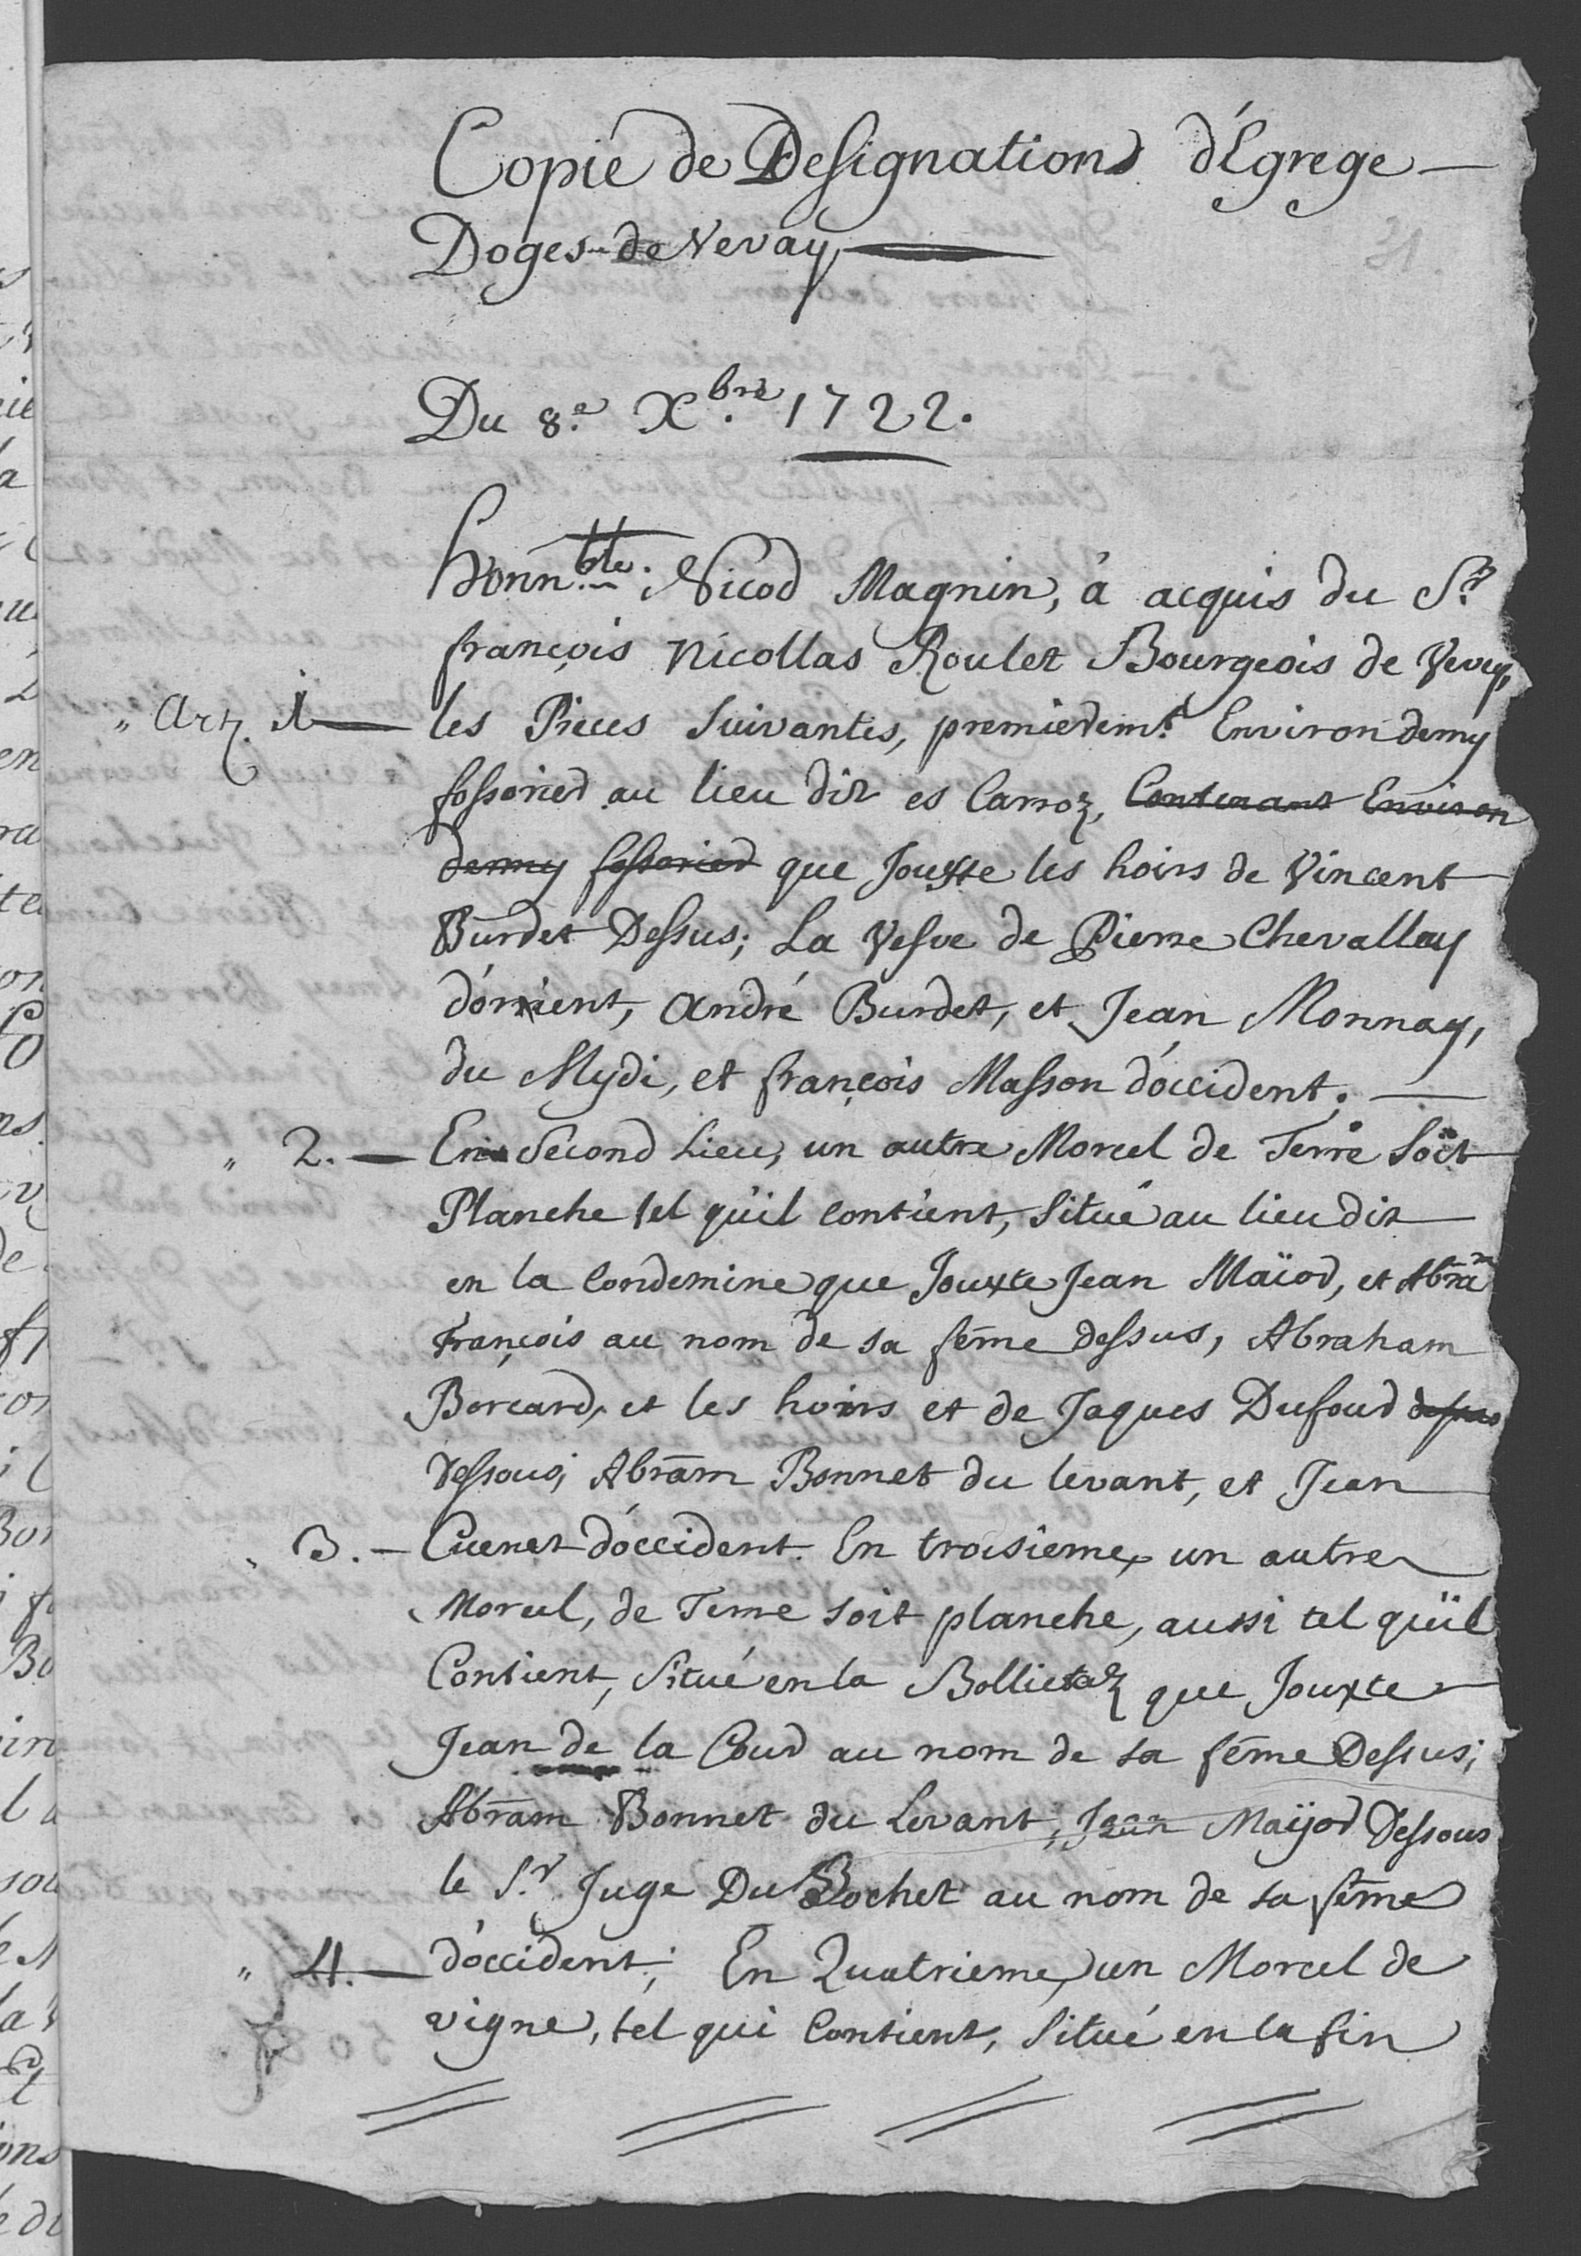 Copie de Designations d'Égrege
Doges de Vevay
Du 8.e Xbre 1722.
Honnble. Nicod Magnin, à acquis du Sr
françois Nicollas Roulet Bourgeois de Vevey,
" Art. 1 — les Pieces Suivantes, premierem.t Environ demy
fossorier au lieu dit es Carroz, Contenant Environ
demy fossorier que Jouxte les hoirs de Vincent
Burdet Dessus; La Vesve de Pierre Chevallay
d'orient, André Burdet, et Jean Monnay,
du Mydi, et françois Masson d'occident. —
" 2. — En Second Lieu, un autre Morcel de Terre Soit
Planche tel qu'il contient, Situé au lieu dit
en la Condemine que Jouxte Jean Maïor, et Abram
François au nom de sa feme dessus, Abraham
Borcard, et les hoirs et de Jaques Dufour dessus
dessous; Abram Bonnet du levant, et Jean
" 3. — Cuenet d'occident. En troisieme, un autre
Morcel, de Terre soit planche, aussi tel qu'il
Contient, Situé en la Bollietaz que Jouxte
Jean de la Cour au nom de sa feme Dessus;
Abram Bonnet du Levant, Jean Maÿor Dessous
le S.r Juge DuBochet au nom de sa feme
" 4. — d'occident; En Quatrieme, un Morcel de
vigne, tel qui Contient, Situé en la fin